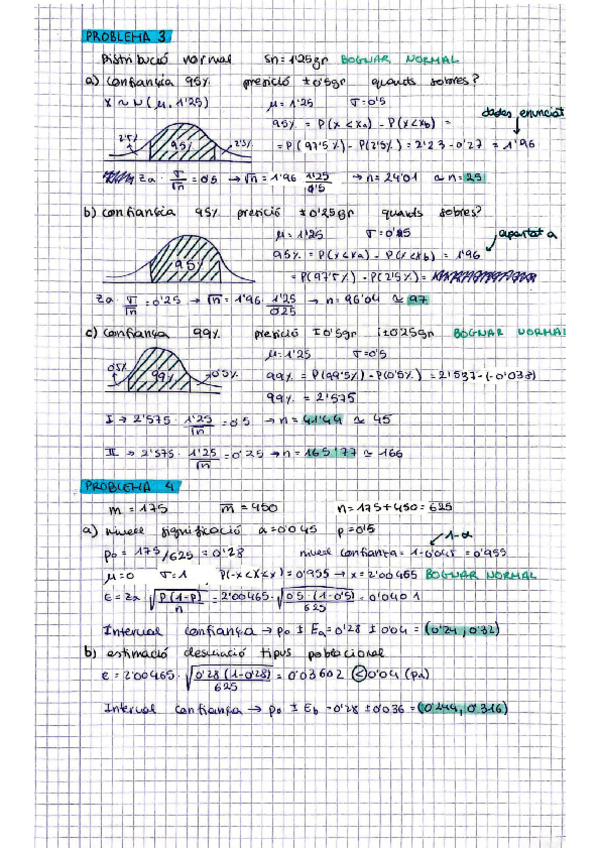 PROBLEMA 3
Distribució normal Sn=1'25gr BOGNAR NORMAL
a) Confiança 95% presició ±0'5gr quants sobres?
X ~ N(μ, 1'25) μ=1'25 σ=0'5
dades enunciat
95% = P(X<Xa) - P(X<Xb) =
2'5% 95% 2'5% = P(97'5%) - P(2'5%) = 2'23 - 0'27 = 1'96
Za · σ/√n = 0'5 → √n = 1'96 1'25/0'5 → n = 24'01 ≃ n = 25
b) Confiança 95% presició ±0'25gr quants sobres?
μ=1'25 σ=0'25 apartat a
95% = P(X<Xa) - P(X<Xb) = 1'96
95% = P(97'5%) - P(2'5%) =
Za · σ/√n = 0'25 → √n = 1'96 · 1'25/0'25 → n = 96'04 ≃ 97
c) Confiança 99% presició ±0'5gr i ±0'25gr BOGNAR NORMAL
μ=1'25 σ=0'5
0'5% 99% 0'5% 99% = P(99'5%) - P(0'5%) = 2'537 - (-0'038)
99% = 2'575
I → 2'575 · 1'25/√n = 0'5 → n = 41'44 ≃ 45
II → 2'575 · 1'25/√n = 0'25 → n = 165'77 ≃ 166
PROBLEMA 4
m = 175 m̅ = 450 n = 175+450 = 625
a) nivell significació α=0'045 p=0'5
1-α
p₀ = 175/625 = 0'28 nivell confiança = 1-0'045 = 0'955
μ=0 σ=1 P(-x<X<x) = 0'955 → x = 2'00465 BOGNAR NORMAL
E = Za · √(P(1-P)/n) = 2'00465 · √(0'5·(1-0'5)/625) = 0'0401
Interval confiança → p₀ ± Ea = 0'28 ± 0'04 = (0'24, 0'32)
b) estimació desviació tipus poblacional
e = 2'00465 · √(0'28(1-0'28)/625) = 0'03602 < 0'04 (Pa)
Interval confiança → p₀ ± Eb = 0'28 ± 0'036 = (0'244, 0'316)